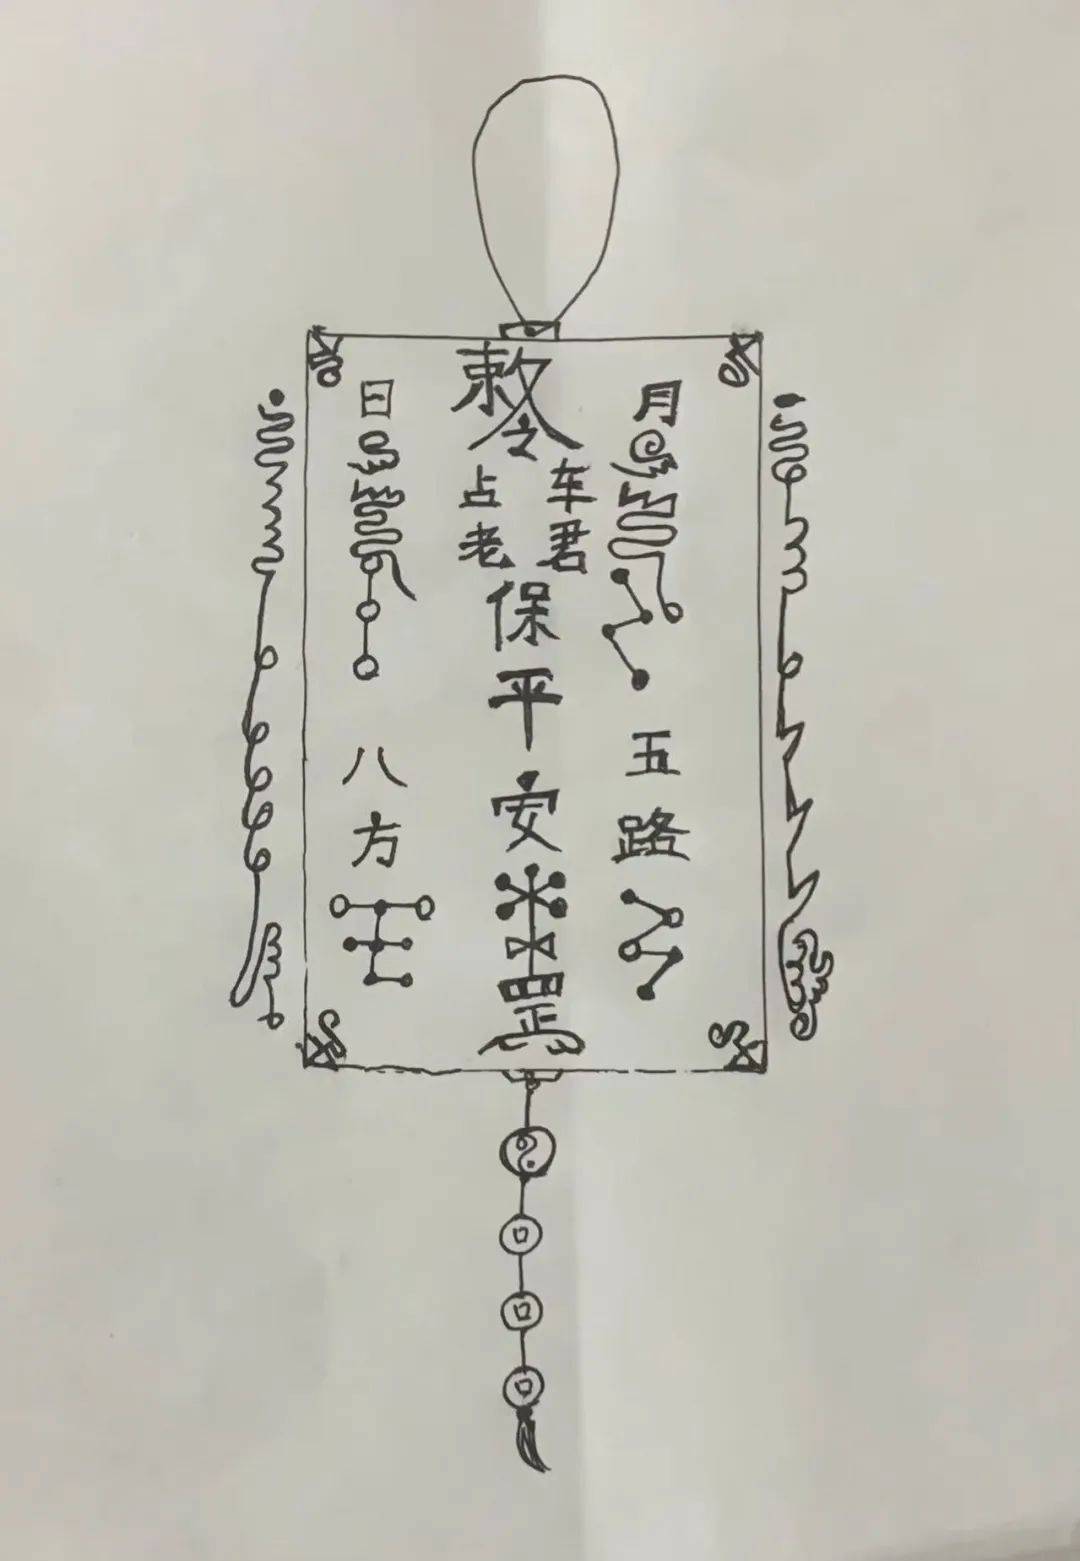 月
五路
敕令
占车
老君
保平安
罡
日
八方